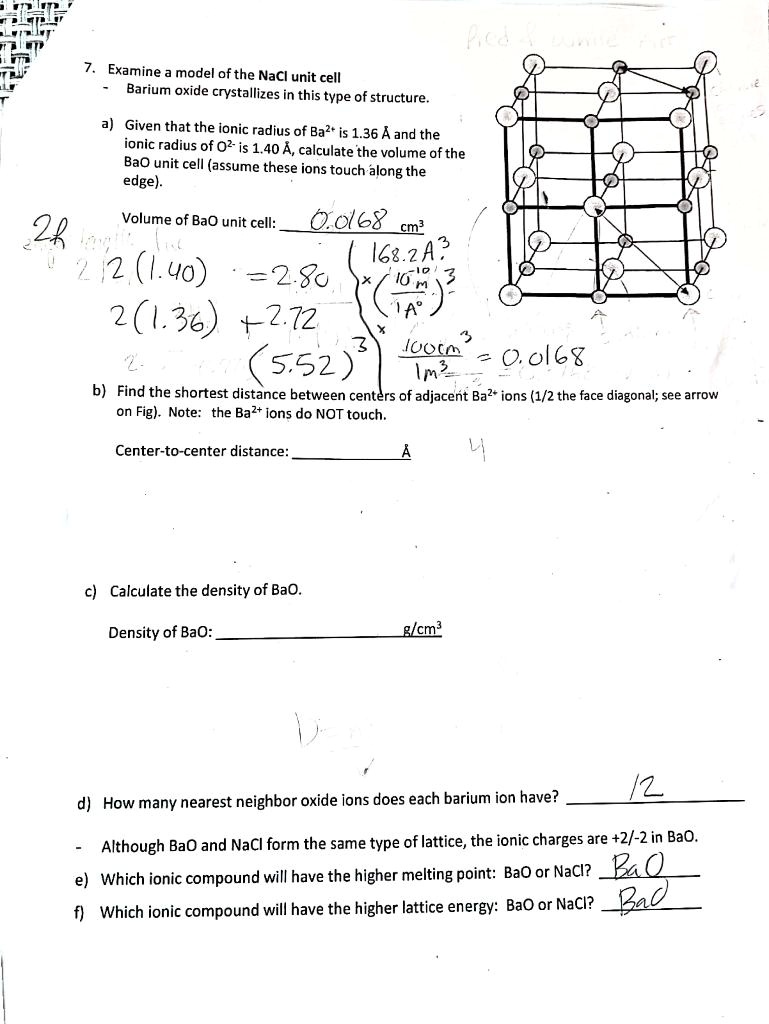 7. Examine a model of the NaCl unit cell
- Barium oxide crystallizes in this type of structure.
a) Given that the ionic radius of Ba²⁺ is 1.36 Å and the
ionic radius of O²⁻ is 1.40 Å, calculate the volume of the
BaO unit cell (assume these ions touch along the
edge).
Volume of BaO unit cell: 0.0168 cm³
168.2 A³
2(1.40) = 2.80 × (10⁻¹⁰ m / 1 A°)³
2(1.36) + 2.72
(5.52)³ × 100cm³ / 1m³ = 0.0168
b) Find the shortest distance between centers of adjacent Ba²⁺ ions (1/2 the face diagonal; see arrow
on Fig). Note: the Ba²⁺ ions do NOT touch.
Center-to-center distance: ____________ Å 4
c) Calculate the density of BaO.
Density of BaO: ____________ g/cm³
d) How many nearest neighbor oxide ions does each barium ion have? 12
- Although BaO and NaCl form the same type of lattice, the ionic charges are +2/-2 in BaO.
e) Which ionic compound will have the higher melting point: BaO or NaCl? BaO
f) Which ionic compound will have the higher lattice energy: BaO or NaCl? BaO